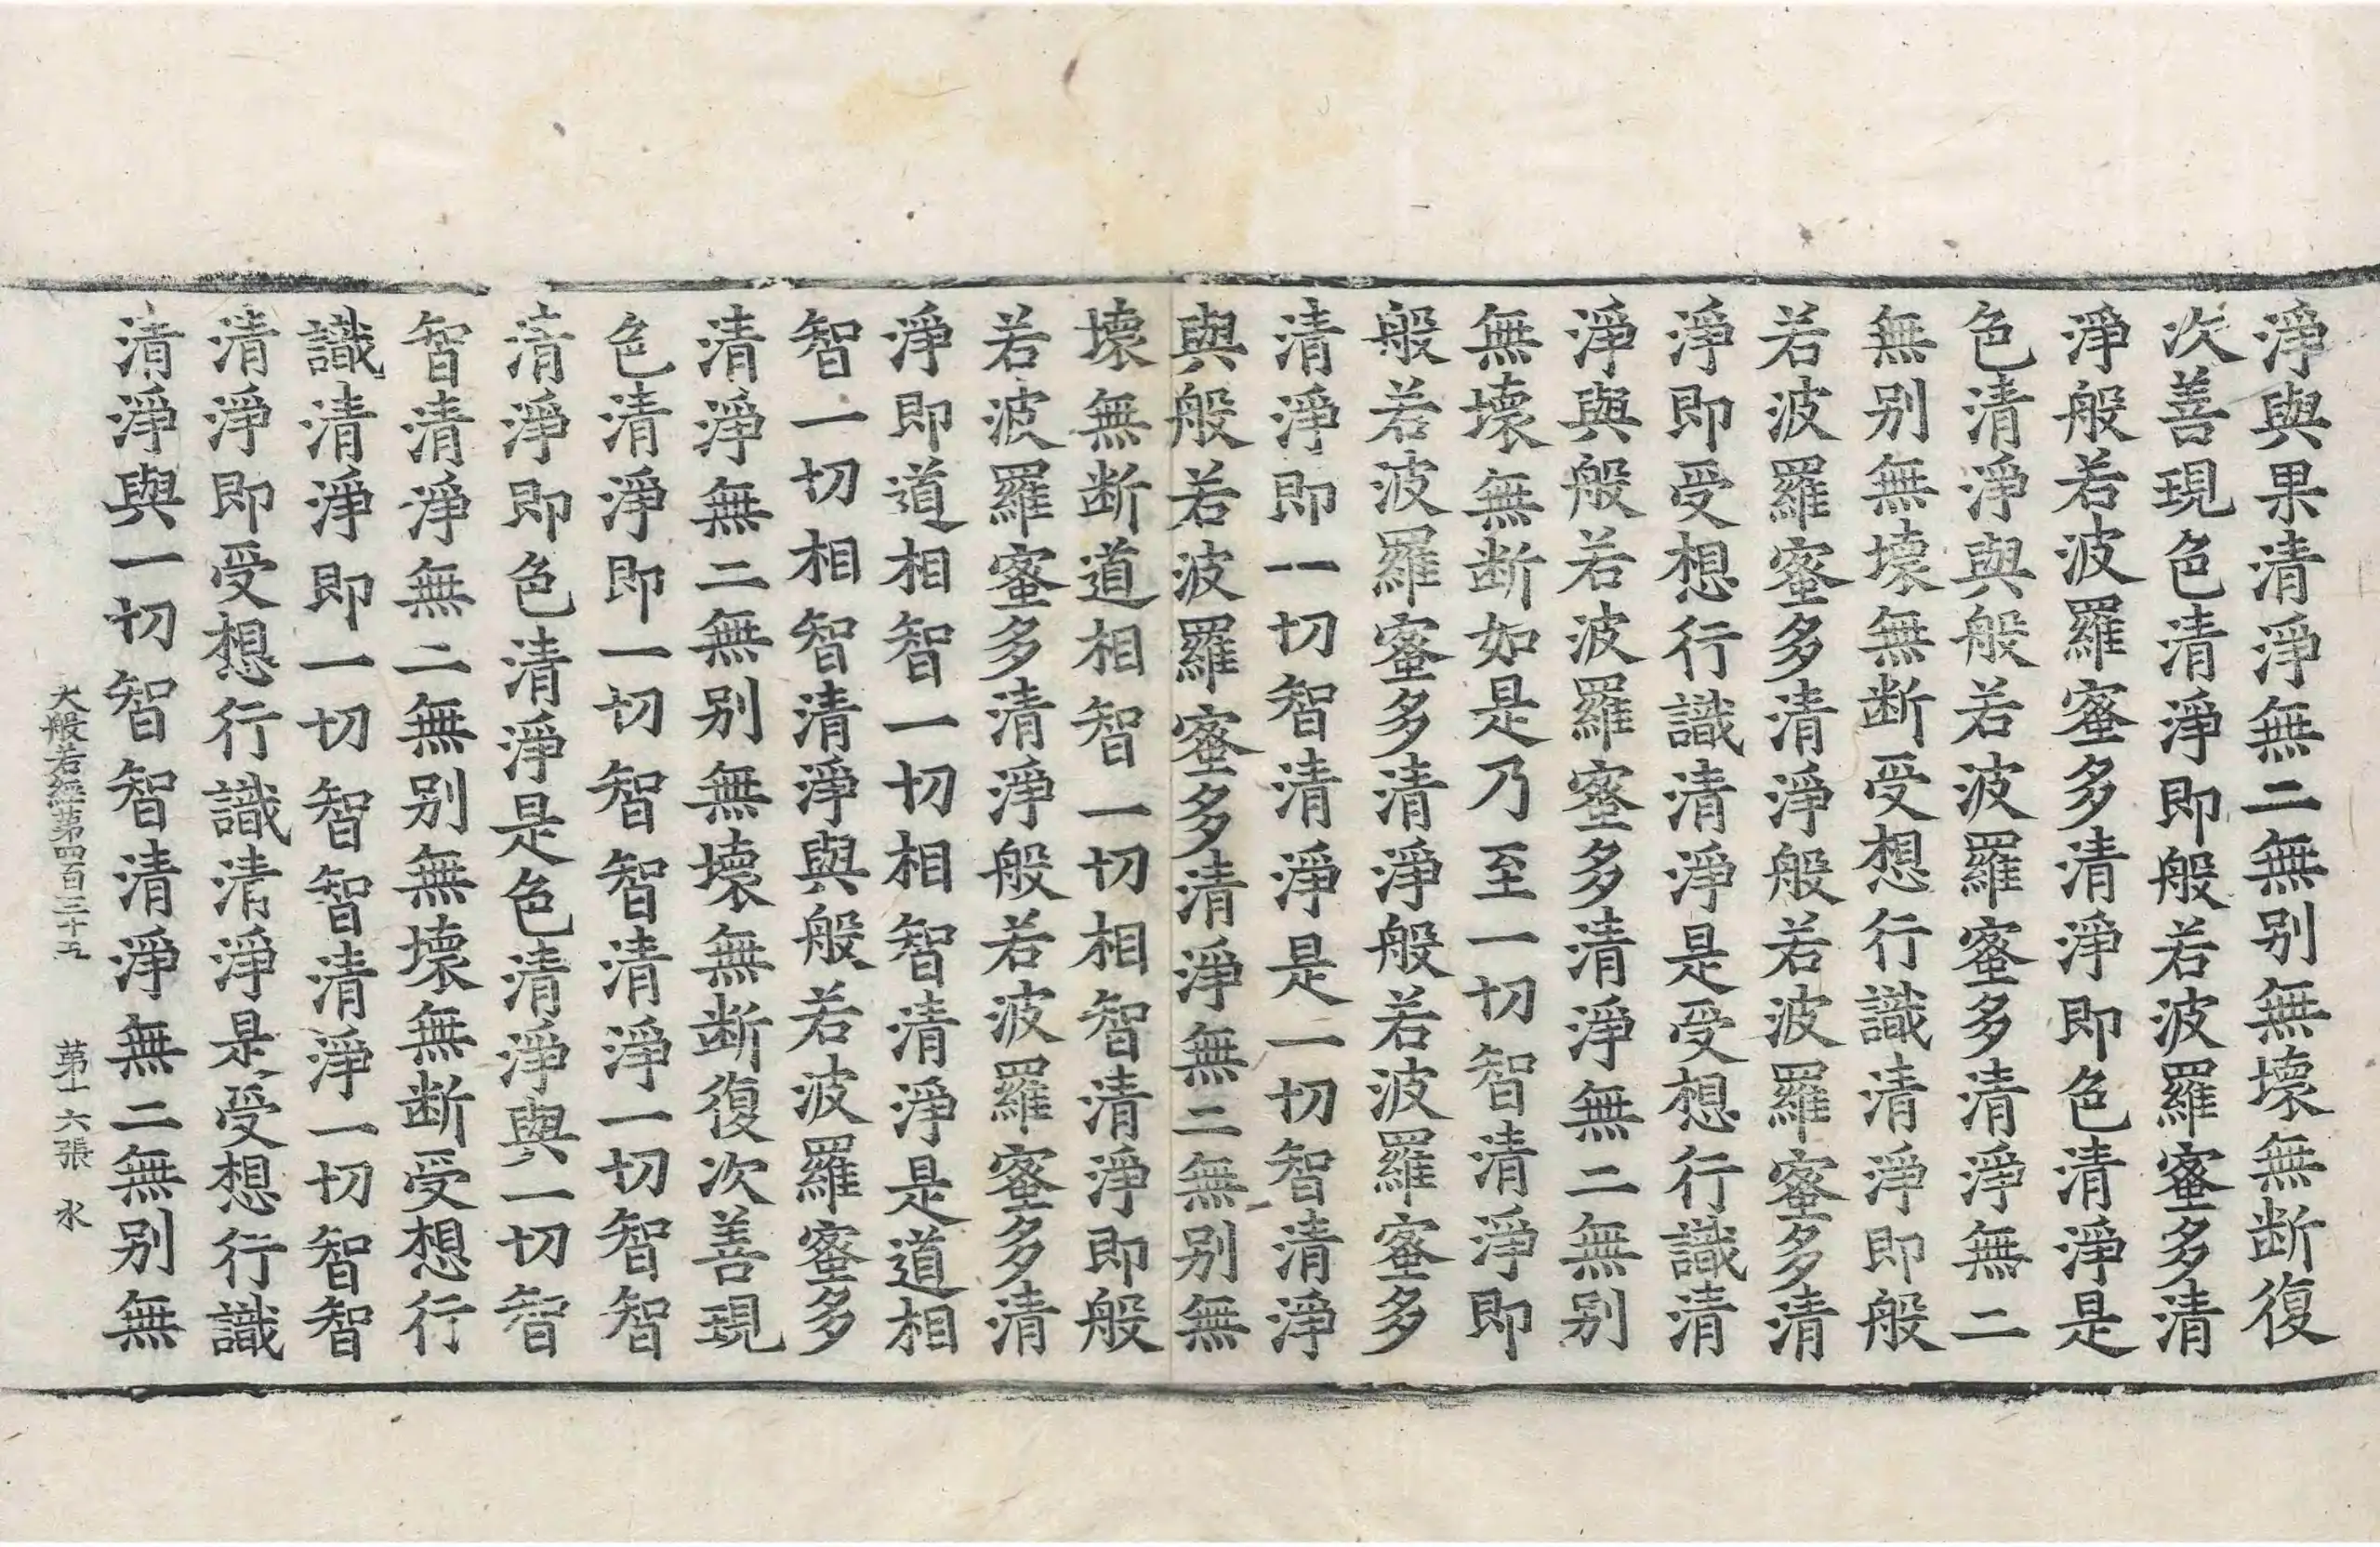 淨與果清淨無二無別無壞無断復
次善現色清淨即般若波羅蜜多清
淨般若波羅蜜多清淨即色清淨是
色清淨與般若波羅蜜多清淨無二
無別無壞無断受想行識清淨即般
若波羅蜜多清淨般若波羅蜜多清
淨即受想行識清淨是受想行識清
淨與般若波羅蜜多清淨無二無別
無壞無断如是乃至一切智清淨即
般若波羅蜜多清淨般若波羅蜜多
清淨即一切智清淨是一切智清淨
與般若波羅蜜多清淨無二無別無
壞無断道相智一切相智清淨即般
若波羅蜜多清淨般若波羅蜜多清
淨即道相智一切相智清淨是道相
智一切相智清淨與般若波羅蜜多
清淨無二無別無壞無断復次善現
色清淨即一切智智清淨一切智智
清淨即色清淨是色清淨與一切智
智清淨無二無別無壞無断受想行
識清淨即一切智智清淨一切智智
清淨即受想行識清淨是受想行識
清淨與一切智智清淨無二無別無
大般若經苐四百三十五 苐十六張 水